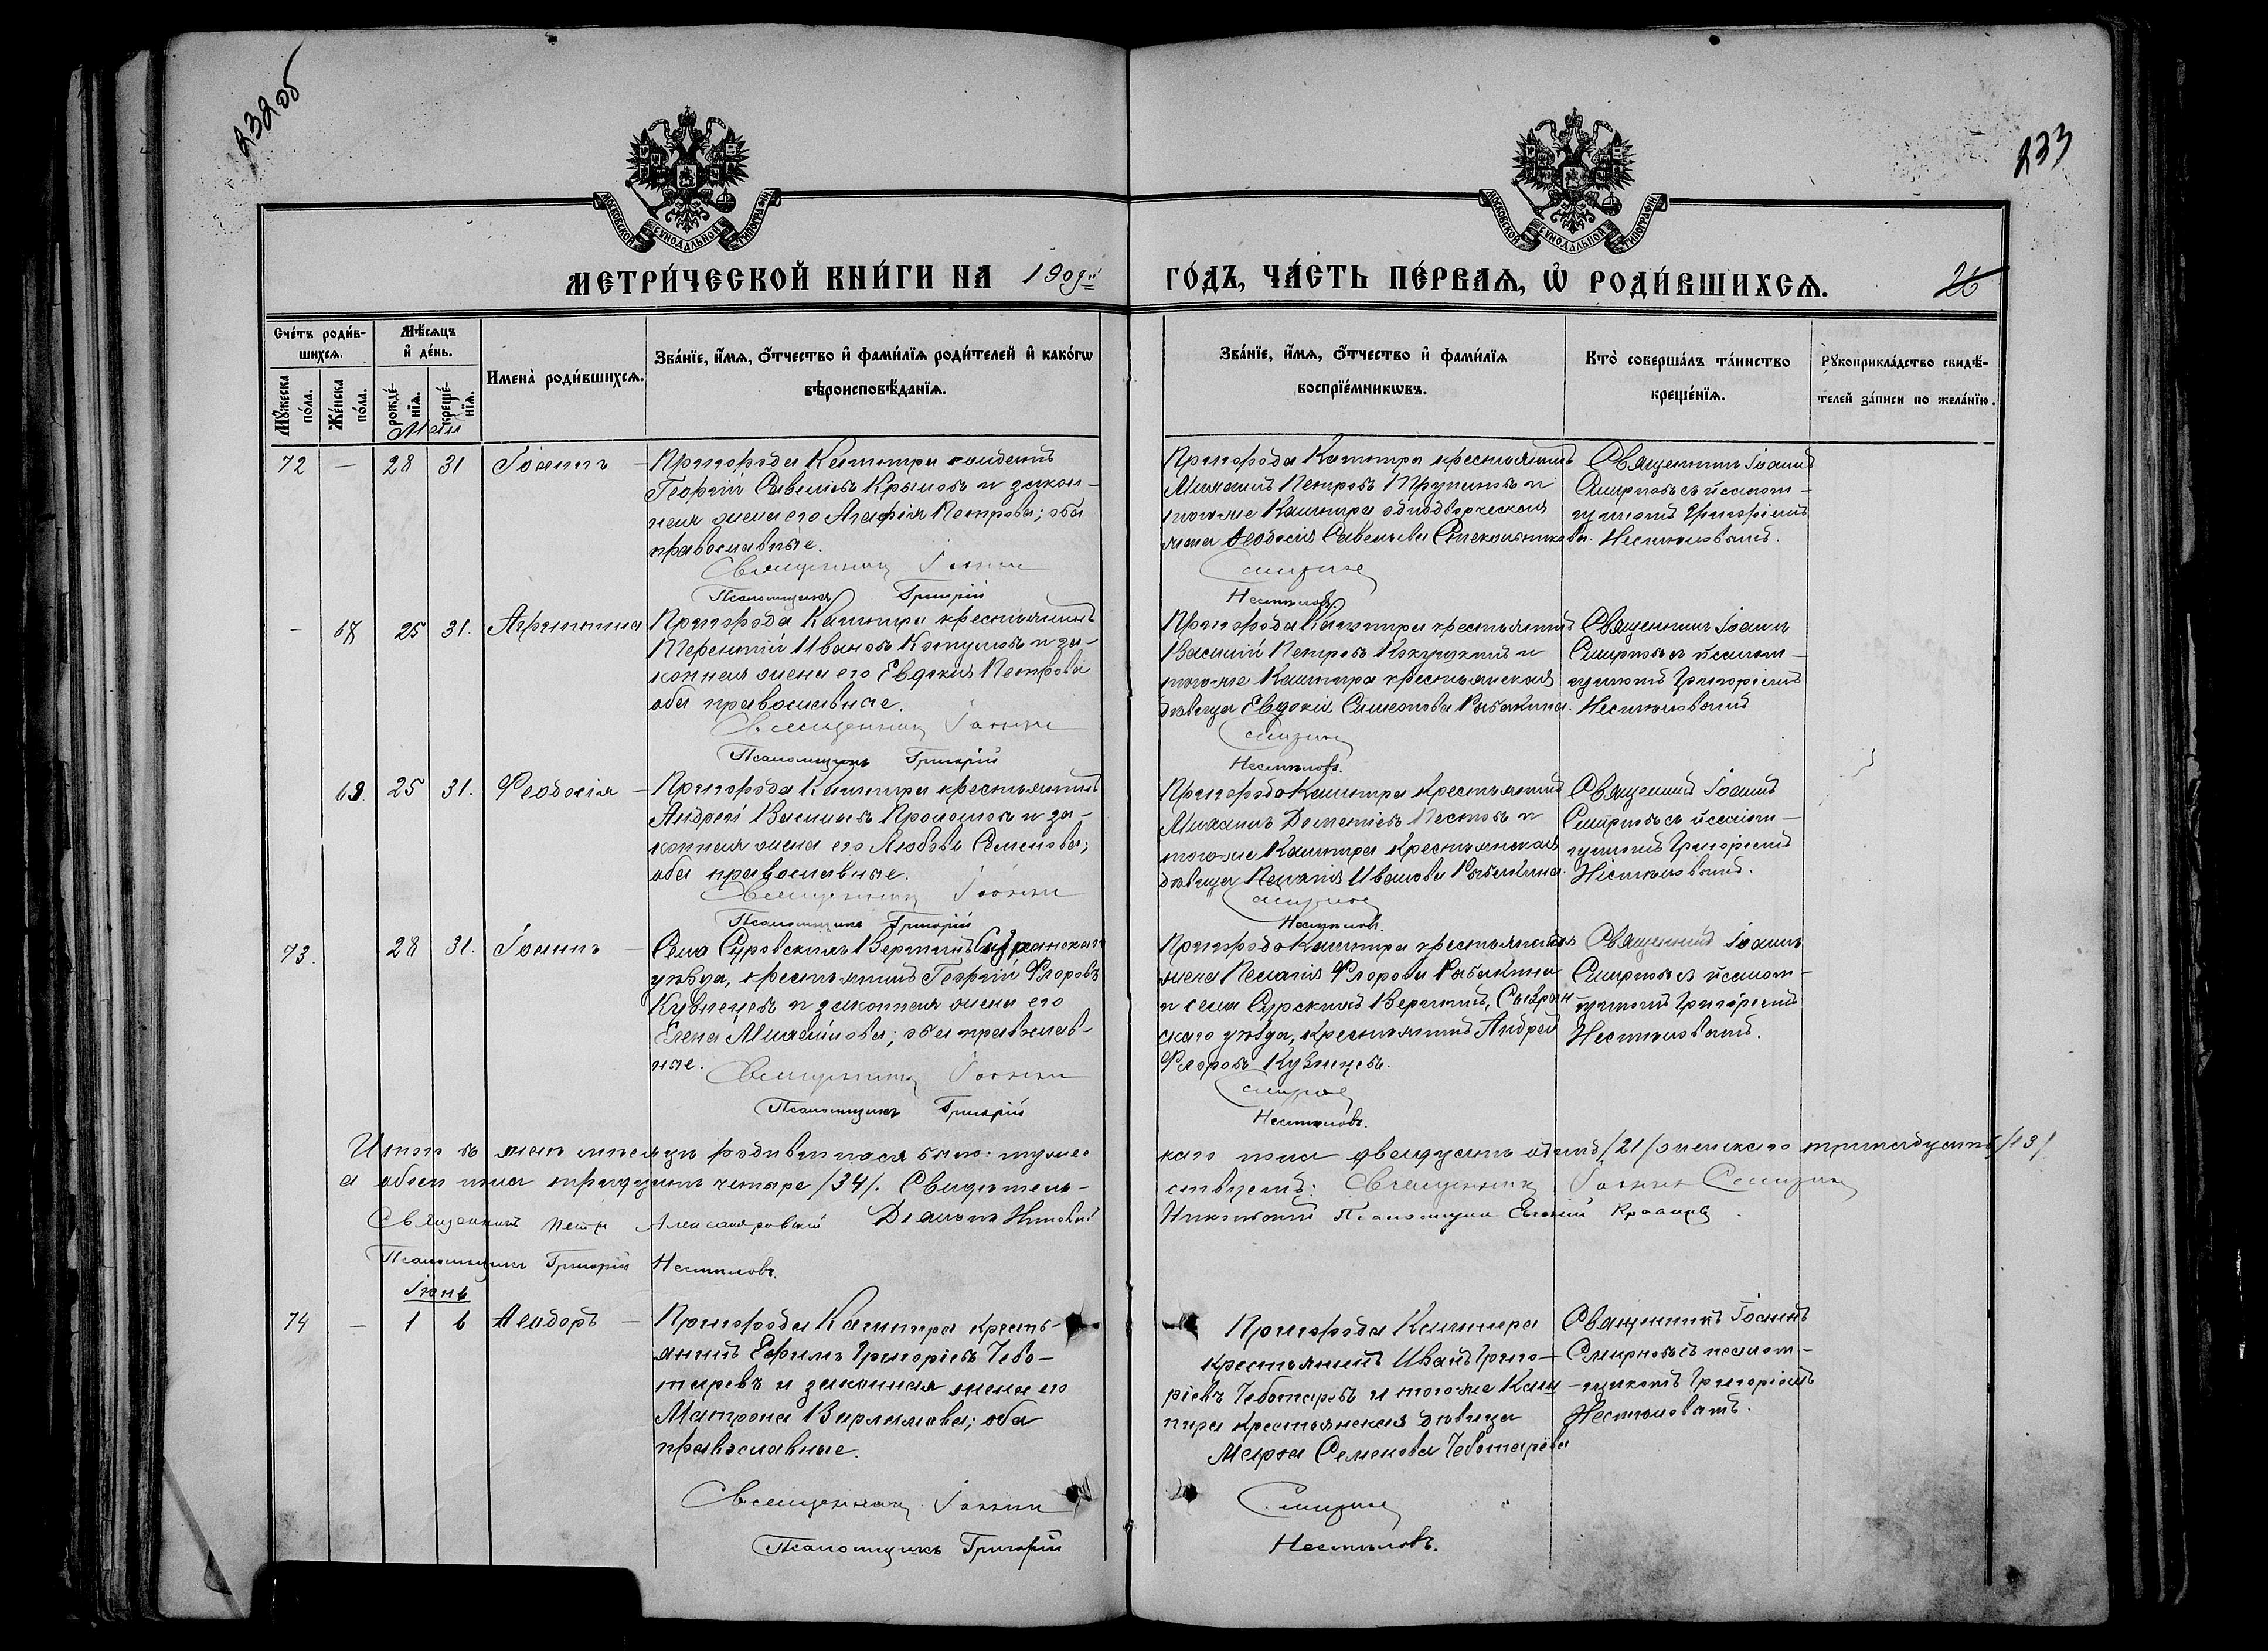 232 об
233
МОСКОВСКОЙ СУНОДАЛЬНОЙ ТИПОГРАФІИ
МОСКОВСКОЙ СУНОДАЛЬНОЙ ТИПОГРАФІИ
МЕТРИ́ЧЕСКОЙ КНИ́ГИ НА 1909й ГО́ДЪ, ЧА́СТЬ ПЕ́РВАѦ, Ѡ҆ РОДИ́ВШИХСѦ.
26
Сче́тъ роди́в-
шихсѧ.
Мꙋ́жеска по́ла.
Же́нска по́ла.
Мѣ́сѧцъ
и҆ де́нь.
рожде́-
нїѧ.
креще́-
нїѧ.
Имена̀ роди́вшихсѧ.
Зва́нїе, и҆́мѧ, ѻ҆́тчество и҆ фами́лїѧ роди́телей и҆ како́гѡ
вѣроисповѣ́данїѧ.
Зва́нїе, и҆́мѧ, ѻ҆́тчество и҆ фами́лїѧ
воспрїе́мникѡвъ.
Кто̀ соверша́лъ та́инство
креще́нїѧ.
Рꙋкоприкла́дство свидѣ́-
телей за́писи по жела́нїю.
Май
72 — 28 31 Іоаннъ
Пригорода Кашпира солдатъ
Георгій Савельевъ Крыловъ и закон-
ная жена его Агафія Петрова; оба
православные.
Священникъ Іоаннъ
Псаломщикъ Григорій
Пригорода Кашпира крестьянинъ
Михаилъ Петровъ Трупиковъ и
того-же Кашпира однодворческая
жена Ѳеодосія Савельева Стекольникова.
Смирновъ
Нестеловъ.
Священникъ Іоаннъ
Смирновъ съ псалом-
щикомъ Григоріемъ
Нестеловымъ.
— 68 25 31. Агрипина
Пригорода Кашпира крестьянинъ
Терентій Ивановъ и за-
конная жена его Евдокія Петрова
оба православные.
Священникъ Іоаннъ
Псаломщикъ Григорій
Пригорода Кашпира крестьянинъ
Василій Петровъ и
того-же Кашпира крестьянская
дѣвица Евдокія Симеонова Рыбакина.
Смирновъ
Нестеловъ.
Священникъ Іоаннъ
Смирновъ съ псалом-
щикомъ Григоріемъ
Нестеловымъ
69. 25 31. Феодосія
Пригорода Кашпира крестьянинъ
Андрей Васильевъ и за-
конная жена его Любовь Семенова;
оба православные.
Священникъ Іоаннъ
Псаломщикъ Григорій
Пригорода Кашпира крестьянинъ
Михаилъ Дометіевъ Пестовъ и
того-же Кашпира крестьянская
дѣвица Пелагія Иванова Рыбакина.
Смирновъ
Нестеловъ.
Священникъ Іоаннъ
Смирновъ съ псалом-
щикомъ Григоріемъ
Нестеловымъ.
73. 28 31. Іоаннъ
Села Суровскихъ Вершинъ Сызранскаго
уѣзда, крестьянинъ Георгій Флоровъ
Кузнецовъ и законная жена его
Елена Михайлова; оба православ-
ные.
Священникъ Іоаннъ
Псаломщикъ Григорій
Пригорода Кашпира крестьянская
жена Пелагія Флорова Рыбакина
и села Вершинъ, Сызран-
скаго уѣзда, крестьянинъ Андрей
Флоровъ Кузнецовъ.
Смирновъ
Нестеловъ.
Священникъ Іоаннъ
Смирновъ съ псалом-
щикомъ Григоріемъ
Нестеловымъ.
Итого въ маѣ мѣсяцѣ родившихся было: мужес
каго пола двадцать одинъ /21/ женскаго тринадцать /13/
а обоего пола тридцать четыре /34/. Свидѣтель-
ствуемъ: Священникъ Іоаннъ Смирновъ
Священникъ Петръ Александровскій Діаконъ Николай
Никольскій Псаломщикъ Евгеній
Псаломщикъ Григорій Нестеловъ.
Іюнь
74 — 1 6 Ѳеодоръ
Пригорода Кашпира кресть-
янинъ Ефимъ Григорьевъ Чебо-
таревъ и законная жена его
Матрона Варламова; оба
православные.
Священникъ Іоаннъ
Псаломщикъ Григорій
Пригорода Кашпира
крестьянинъ Иванъ Григо-
ріевъ Чеботаревъ и того-же Каш-
пира крестьянская дѣвица
Марѳа Семенова Чеботарева
Смирновъ
Нестеловъ.
Священникъ Іоаннъ
Смирновъ съ псалом-
щикомъ Григоріемъ
Нестеловымъ.